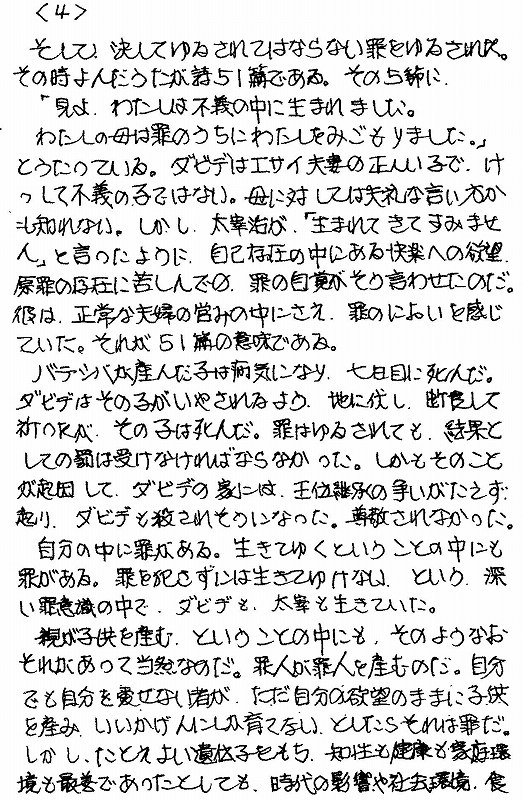 ＜4＞
そして、決してゆるされてはならない罪をゆるされた。
その時よんだうたが詩51篇である。その5節に、
「見よ、わたしは不義の中に生まれました。
わたしの母は罪のうちにわたしをみごもりました。」
とうたっている。ダビデはエサイ夫妻の正しい子で、け
っして不義の子ではない。母に対しては失礼な言い方か
も知れない。しかし、太宰治が、「生まれてきてすみませ
ん」と言ったように、自己存在の中にある快楽への欲望、
原罪の存在に苦しんでの、罪の自覚がそう言わせたのだ。
彼は、正常な夫婦の営みの中にさえ、罪のにおいを感じ
ていた。それが51篇の意味である。
バテシバが産んだ子は病気になり、七日目に死んだ。
ダビデはその子がいやされるよう、地に伏し、断食して
祈ったが、その子は死んだ。罪はゆるされても、結果と
しての罰は受けなければならなかった。しかもそのこと
が起因して、ダビデの家には、王位継承の争いがたえず
起り、ダビデも殺されそうになった。尊敬されなかった。
自分の中に罪がある。生きてゆくということの中にも
罪がある。罪を犯さずには生きてゆけない、という、深
い罪意識の中で、ダビデも、太宰も生きていた。
親が子供を産む、ということの中にも、そのようなお
それがあって当然なのだ。罪人が罪人を産むのだ。自分
でも自分を愛せない者が、ただ自分の欲望のままに子供
を産み、いいかげんにしか育てない、としたらそれは罪だ。
しかし、たとえよい遺伝子をもち、知性も健康も家庭環
境も最善であったとしても、時代の影響や社会環境、食